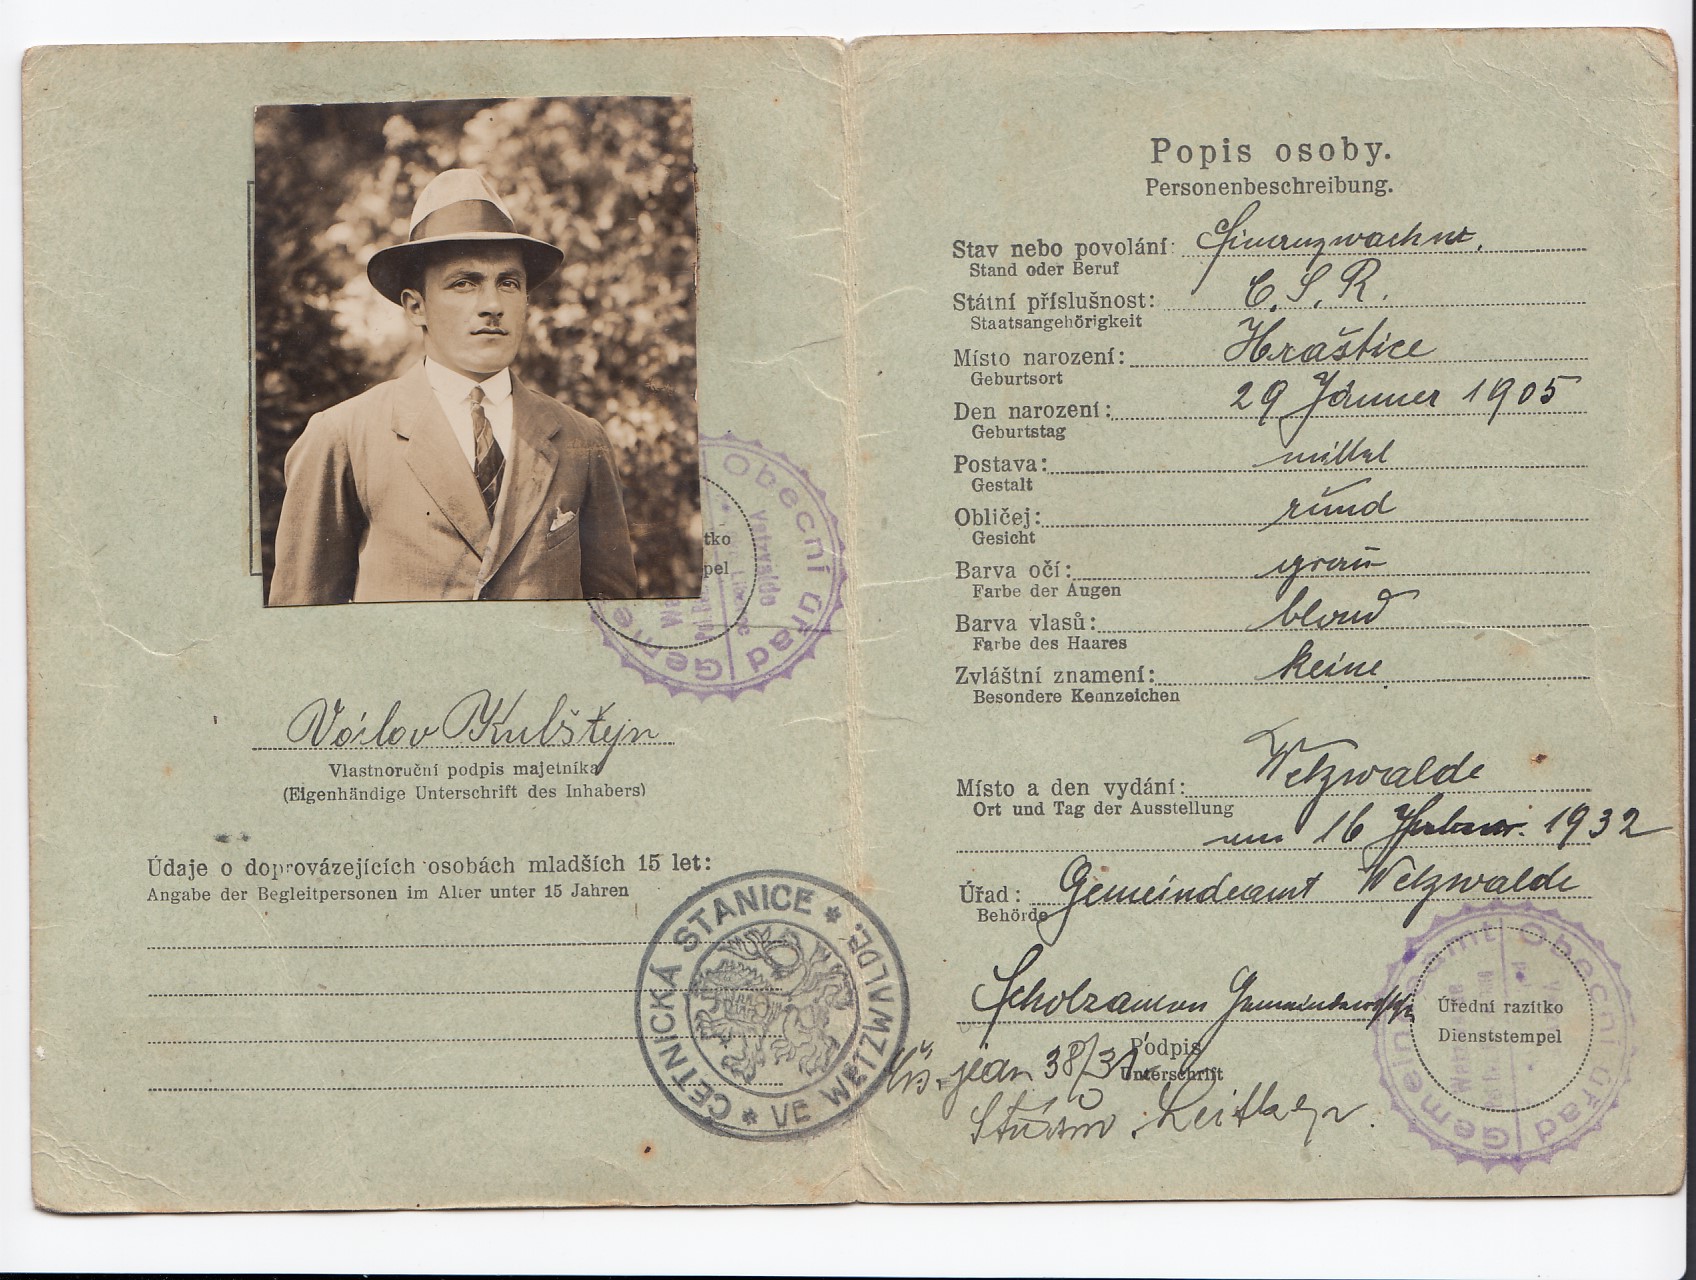 tko
pel
Obecní úřad
Vetzvaldo
Václav Kulštejn
Vlastnoruční podpis majetníka
(Eigenhändige Unterschrift des Inhabers)
Údaje o doprovázejících osobách mladších 15 let:
Angabe der Begleitpersonen im Alter unter 15 Jahren
ČETNICKÁ STANICE * VE WETZWALDE. *
Popis osoby.
Personenbeschreibung.
Stav nebo povolání:
Stand oder Beruf
Státní příslušnost: C. S. R.
Staatsangehörigkeit
Místo narození: Hraštice
Geburtsort
Den narození: 29 Jänner 1905
Geburtstag
Postava: mittel
Gestalt
Obličej: rund
Gesicht
Barva očí: grau
Farbe der Augen
Barva vlasů: blond
Farbe des Haares
Zvláštní znamení: keine
Besondere Kennzeichen
Místo a den vydání: Wetzwalde
Ort und Tag der Ausstellung
am 16 1932
Úřad: Gemeindeamt Wetzwalde
Behörde
Podpis
Unterschrift
Čís. jedn 38/31
Gemeindeamt Obecní úřad
Úřední razítko
Dienststempel